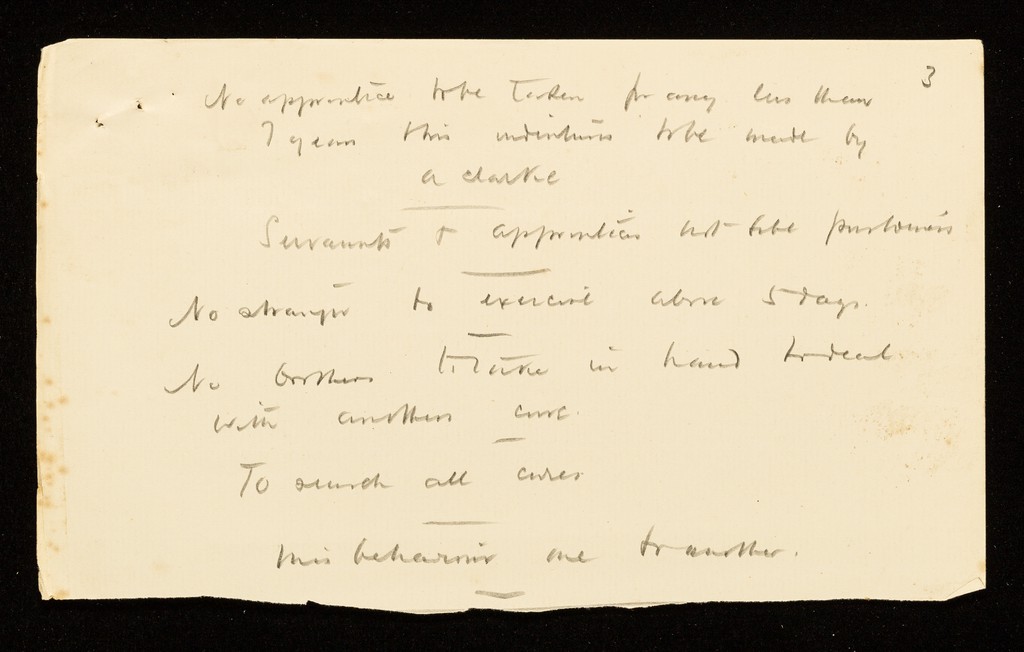 3
No apprentice to be Taken for any less than
7 years this indentures to be made by
a clarke
Servants & apprentices not to be
No stranger to exercise above 5 days.
No brothers to Take in hand to deal
with anothers cure.
To search all cures
Misbehaviour one to another.